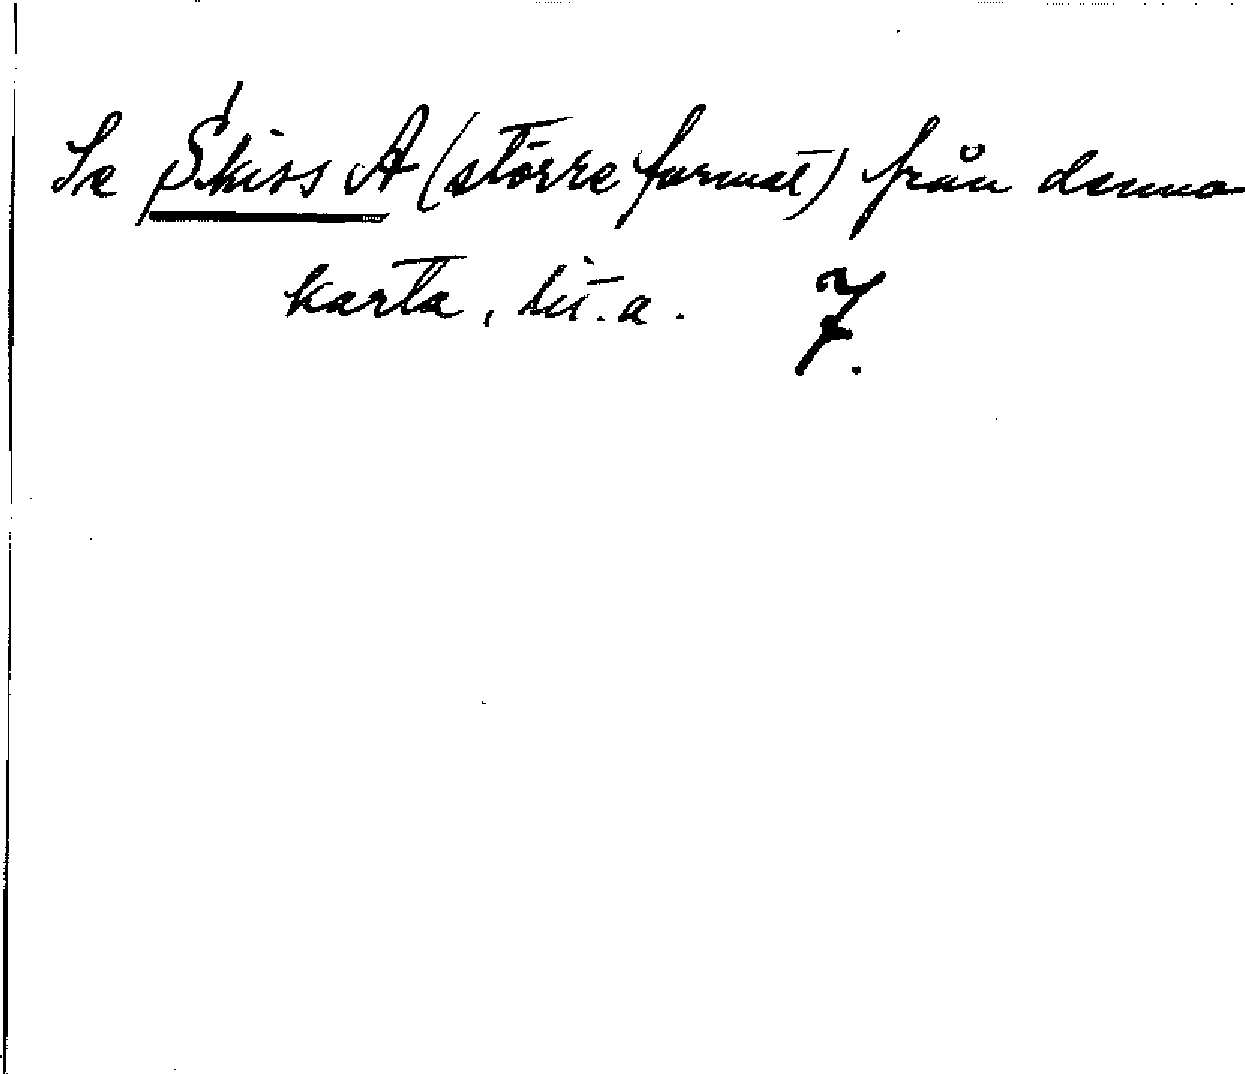 Se Skiss A (större format) från denna
karta, lit. a. 7.